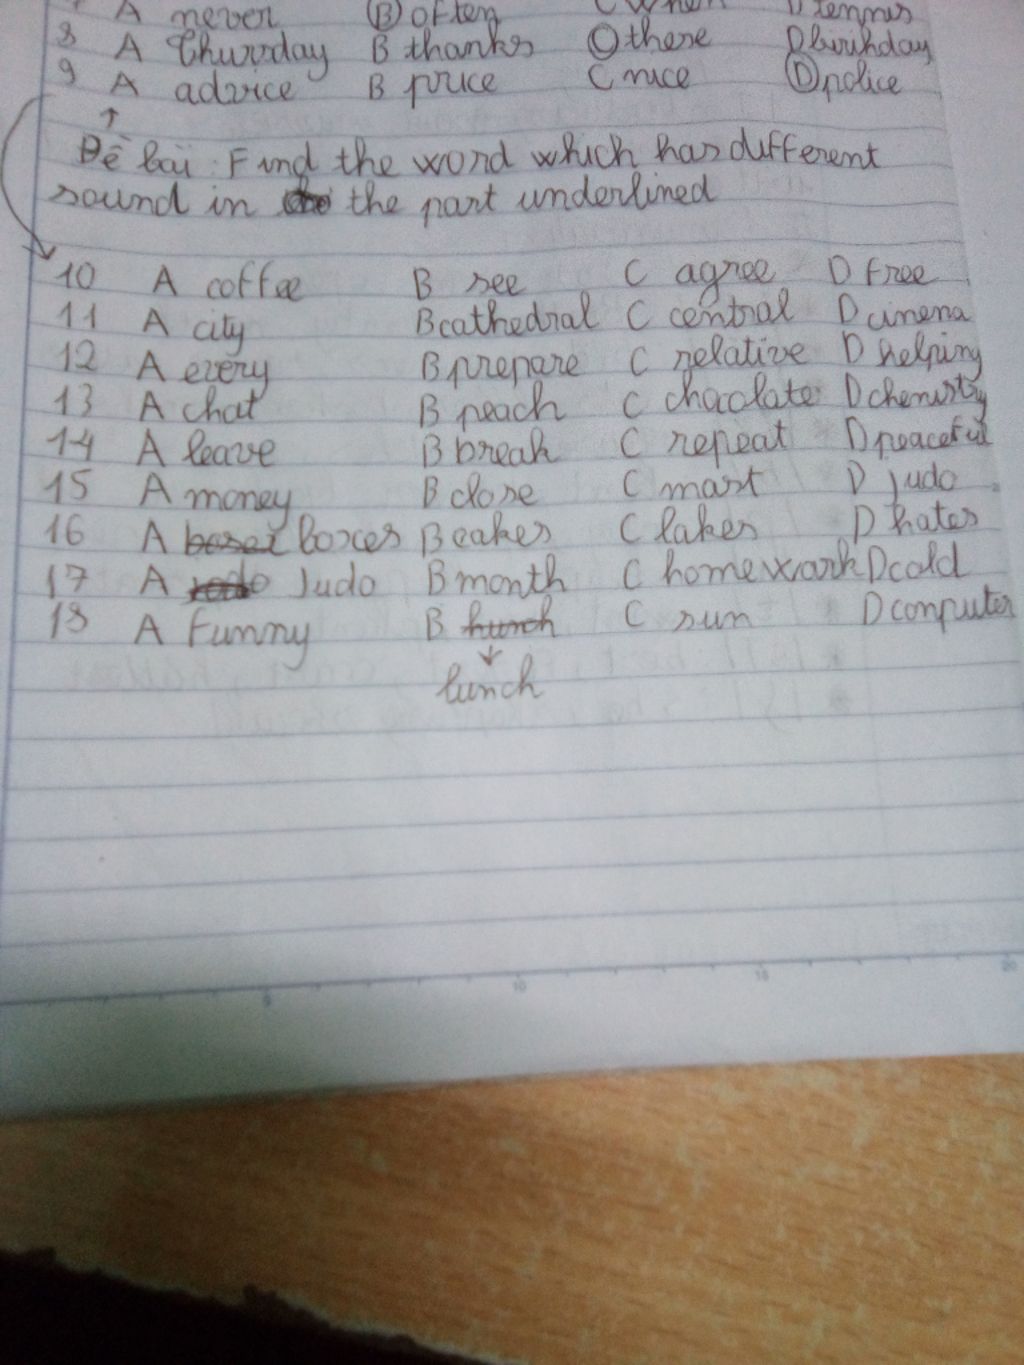 A never B often C when D tennis
8 A Thurday B thanks C these D birthday
9 A advice B price C nice D police
Đề bài: Find the word which has different
sound in the part underlined
10 A coffee B see C agree D free
11 A city B cathedral C central D cinema
12 A every B prepare C relative D helping
13 A chat B peach C chocolate D chemistry
14 A leave B break C repeat D peaceful
15 A money B close C most D judo
16 A boxes B cakes C lakes D hates
17 A Judo B month C homework D cold
18 A Funny B hunch C sun D computer
lunch
5 10 15 20